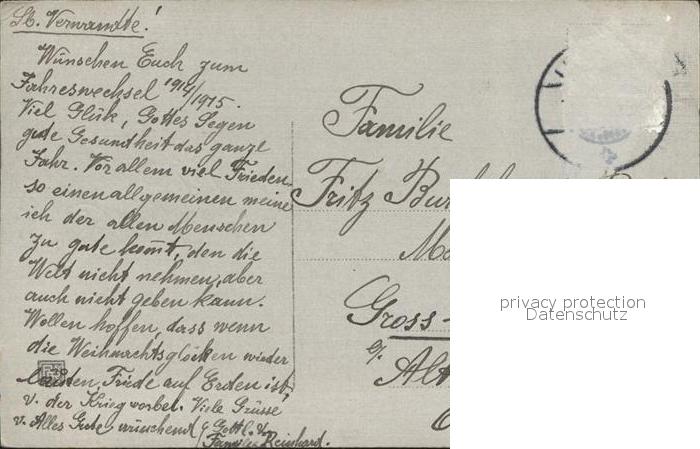 Lb. Verwandte!
Wünschen Euch zum
Jahreswechsel 1914/1915.
Viel Glük, Gottes Segen
gute Gesundheit das ganze
Jahr. Vor allem viel Frieden
so einen allgemeinen meine
ich der allen Menschen
zu gute kom̄t, den die
Welt nicht nehmen, aber
auch nicht geben kann.
Wollen hoffen, dass wenn
die Weihnachtsglöcken wieder
läuten, Friede auf Erden ist,
u. der Krieg vorbei. Viele Grüsse
u. Alles Gute wünschend
Familie Reinhard.
Familie
Fritz
Gross-
Alt
privacy protection
Datenschutz